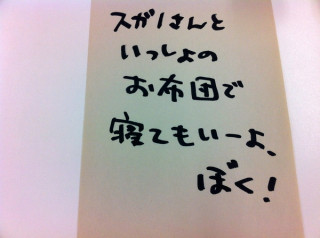 スガノさんと
いっしょの
お布団で
寝てもいーよ、
ぼく!